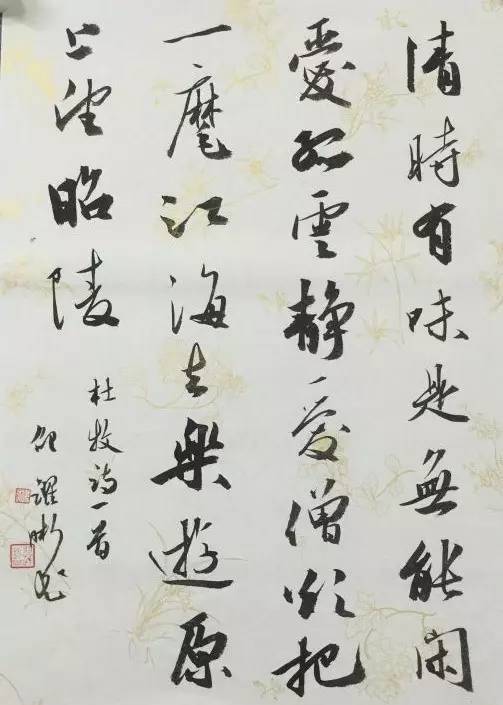 清時有味是無能闲
愛孤雲静愛僧欲把
一麾江海去樂遊原
上望昭陵
杜牧詩一首
躍书